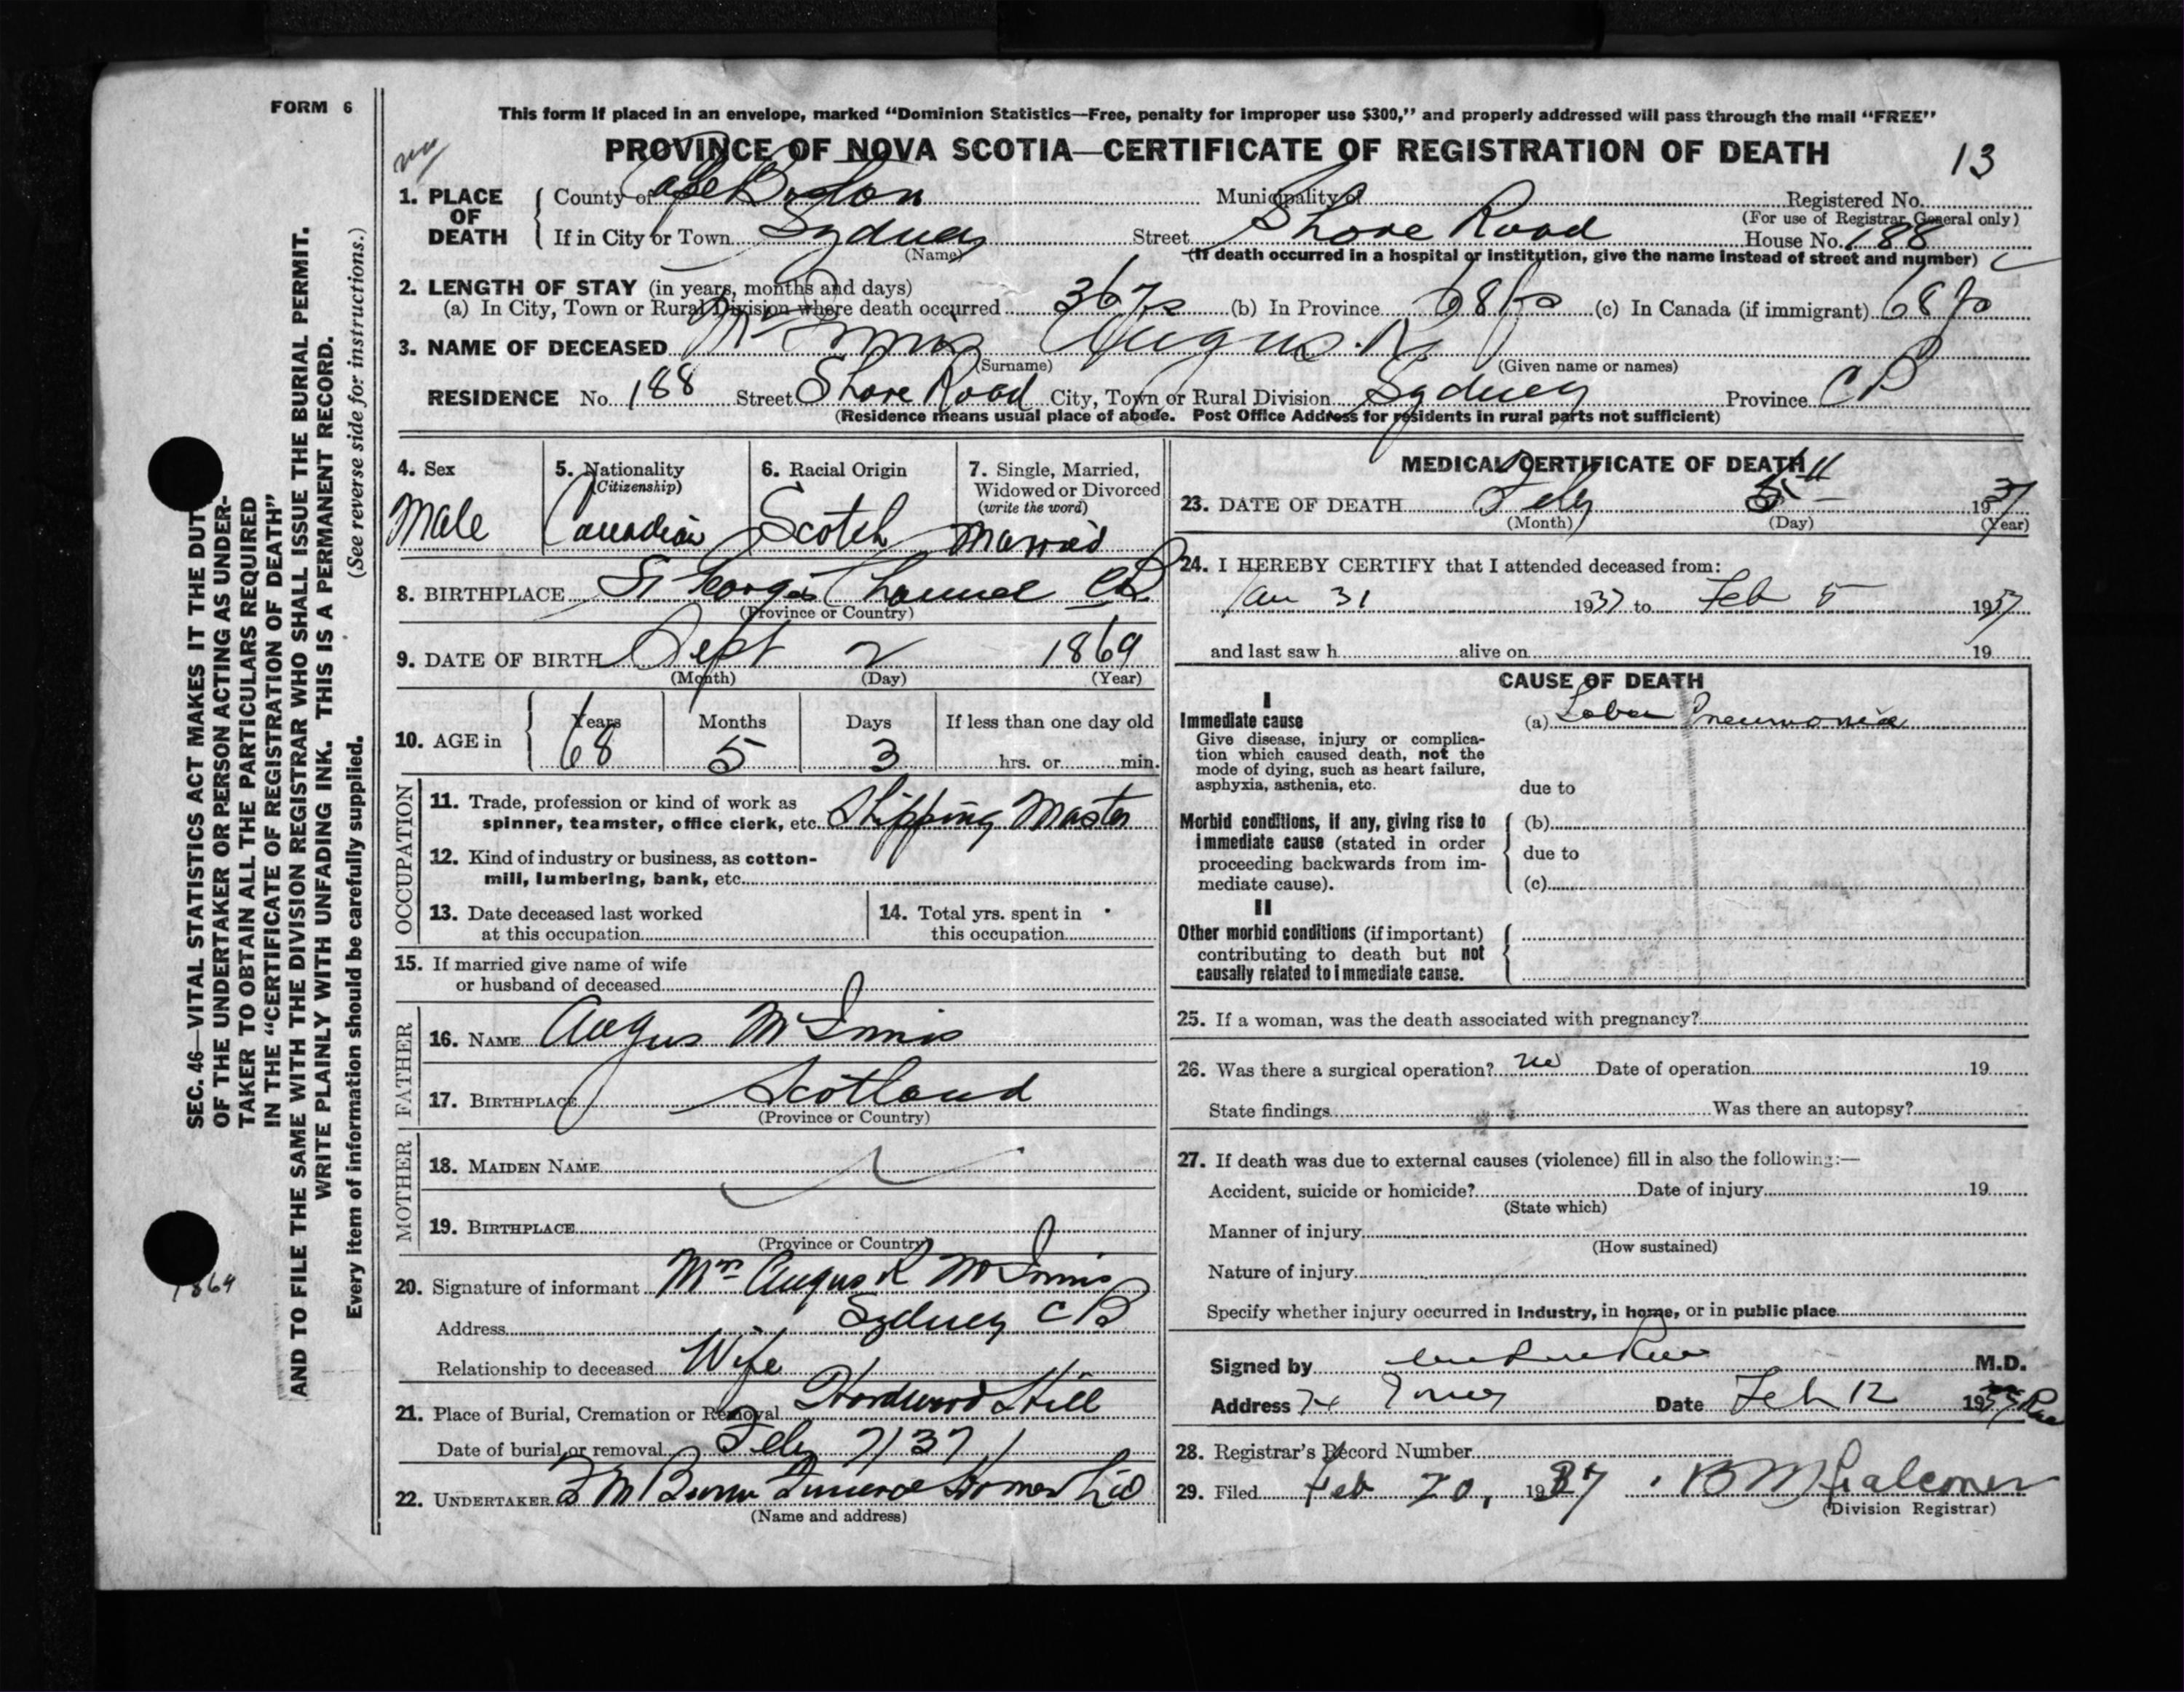 FORM 6
This form if placed in an envelope, marked “Dominion Statistics—Free, penalty for improper use $300,” and properly addressed will pass through the mail “FREE”
PROVINCE OF NOVA SCOTIA—CERTIFICATE OF REGISTRATION OF DEATH
13
1. PLACE OF DEATH
County of Cape Breton Municipality of Registered No.
(For use of Registrar General only)
If in City or Town Sydney Street Shore Road House No. 188
(Name) (If death occurred in a hospital or institution, give the name instead of street and number)
2. LENGTH OF STAY (in years, months and days)
(a) In City, Town or Rural Division where death occurred 36 (b) In Province 68 (c) In Canada (if immigrant) 68
3. NAME OF DECEASED McInnis Angus. R.
(Surname) (Given name or names)
RESIDENCE No. 188 Street Shore Road City, Town or Rural Division Sydney Province C B
(Residence means usual place of abode. Post Office Address for residents in rural parts not sufficient)
4. Sex
Male
5. Nationality
(Citizenship)
Canadian
6. Racial Origin
Scotch
7. Single, Married,
Widowed or Divorced
(write the word)
Married
8. BIRTHPLACE St Georges Channel CB
(Province or Country)
9. DATE OF BIRTH Sept 2 1869
(Month) (Day) (Year)
10. AGE in
Years Months Days If less than one day old
68 5 3 hrs. or min.
OCCUPATION
11. Trade, profession or kind of work as
spinner, teamster, office clerk, etc. Shipping Master
12. Kind of industry or business, as cotton-
mill, lumbering, bank, etc.
13. Date deceased last worked
at this occupation
14. Total yrs. spent in
this occupation
15. If married give name of wife
or husband of deceased
FATHER
16. NAME Angus McInnis
17. BIRTHPLACE Scotland
(Province or Country)
MOTHER
18. MAIDEN NAME
19. BIRTHPLACE
(Province or Country)
20. Signature of informant Mrs Angus R McInnis
Address Sydney C B
Relationship to deceased Wife
21. Place of Burial, Cremation or Removal Hardwood Hill
Date of burial or removal Feby 7/37
22. UNDERTAKER Funeral Home Ltd
(Name and address)
MEDICAL CERTIFICATE OF DEATH
23. DATE OF DEATH Feby 5th 1937
(Month) (Day) (Year)
24. I HEREBY CERTIFY that I attended deceased from:
Jan 31 1937 to Feb 5 1937
and last saw h alive on 19
CAUSE OF DEATH
I
Immediate cause
Give disease, injury or complica-
tion which caused death, not the
mode of dying, such as heart failure,
asphyxia, asthenia, etc.
(a) Lobar Pneumonia
due to
Morbid conditions, if any, giving rise to
immediate cause (stated in order
proceeding backwards from im-
mediate cause).
(b)
due to
(c)
II
Other morbid conditions (if important)
contributing to death but not
causally related to immediate cause.
25. If a woman, was the death associated with pregnancy?
26. Was there a surgical operation? no Date of operation 19
State findings Was there an autopsy?
27. If death was due to external causes (violence) fill in also the following:—
Accident, suicide or homicide? Date of injury 19
(State which)
Manner of injury
(How sustained)
Nature of injury
Specify whether injury occurred in Industry, in home, or in public place
Signed by M.D.
Address Date Feb 12 19
28. Registrar's Record Number
29. Filed Feb 20, 1937 B M Falconer
(Division Registrar)
SEC. 46—VITAL STATISTICS ACT MAKES IT THE DUT
OF THE UNDERTAKER OR PERSON ACTING AS UNDER-
TAKER TO OBTAIN ALL THE PARTICULARS REQUIRED
IN THE “CERTIFICATE OF REGISTRATION OF DEATH”
AND TO FILE THE SAME WITH THE DIVISION REGISTRAR WHO SHALL ISSUE THE BURIAL PERMIT.
WRITE PLAINLY WITH UNFADING INK. THIS IS A PERMANENT RECORD.
Every item of information should be carefully supplied. (See reverse side for instructions.)
1869